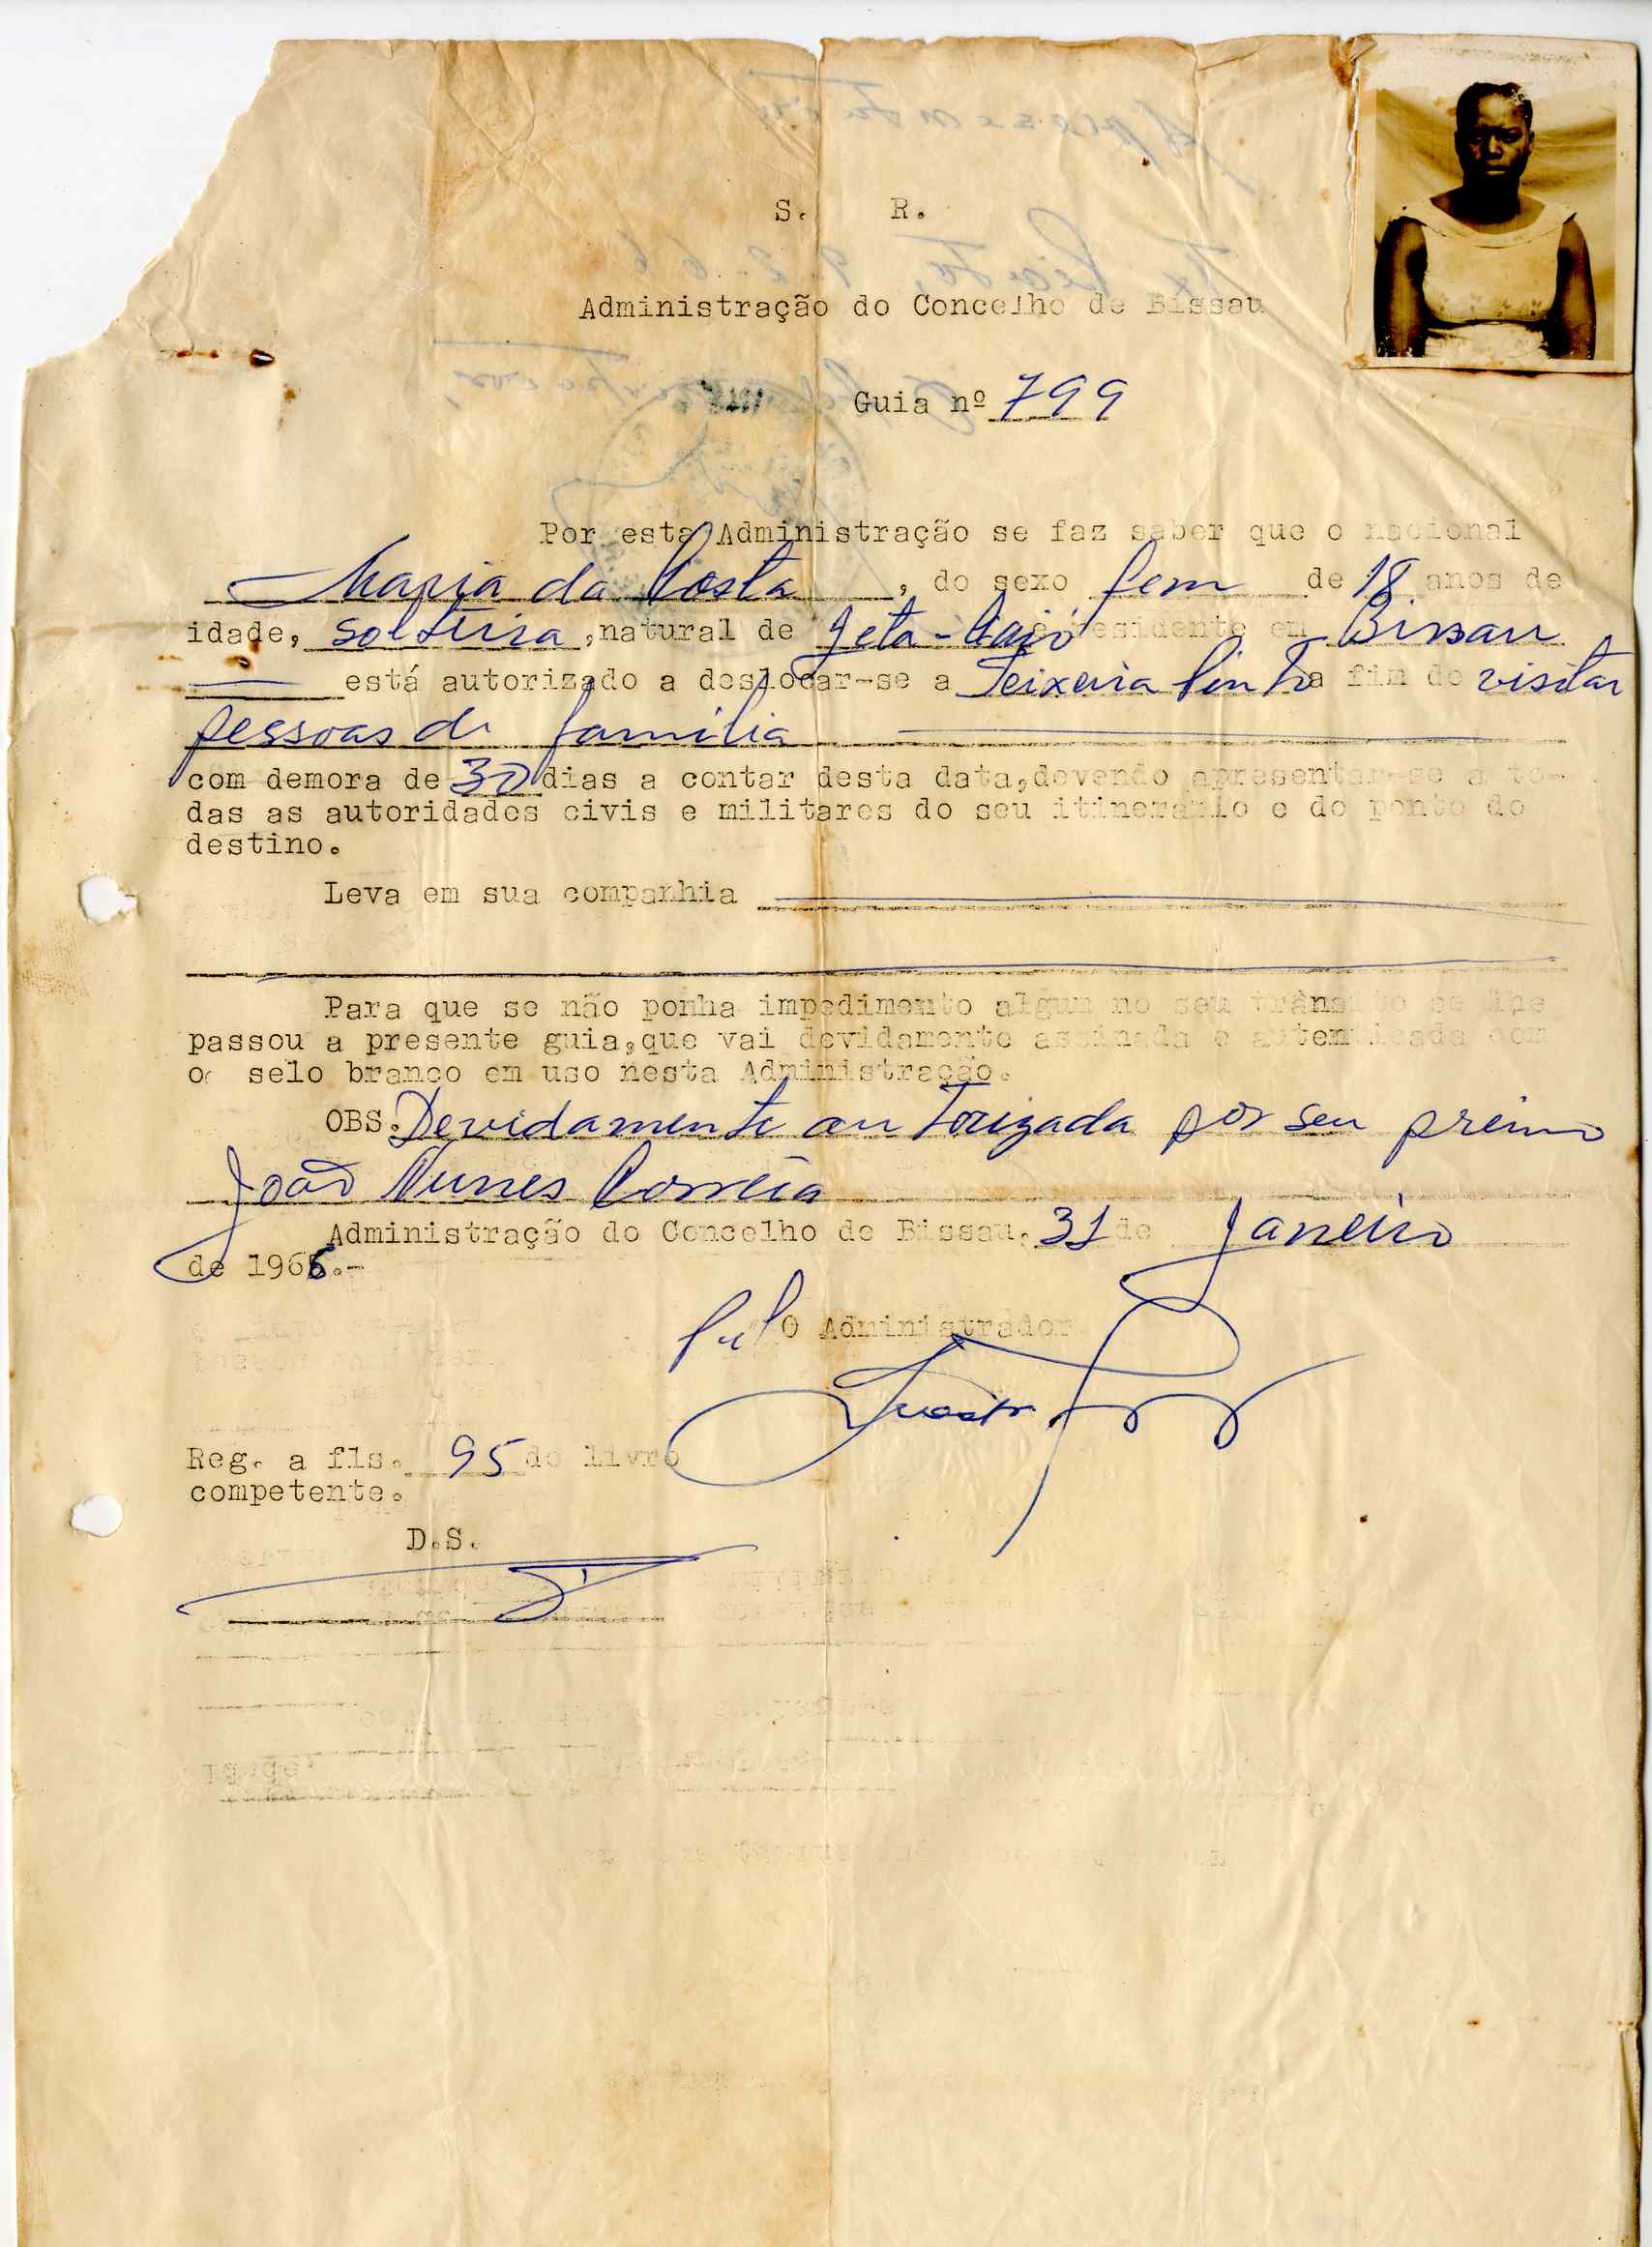 S. R.
Administração do Concelho de Bissau
Guia nº 799
Por esta Administração se faz saber que o nacional
Maria da Costa, do sexo fem de 18 anos de
idade, solteira, natural de Jeta-Caió e residente em Bissau
está autorizado a deslocar-se a Teixeira Pinto a fim de visitar
pessoas de família
com demora de 30 dias a contar desta data, devendo apresentar-se a to-
das as autoridades civis e militares do seu itinerario e do ponto do
destino.
Leva em sua companhia
Para que se não ponha impedimento algum no seu trânsito se lhe
passou a presente guia, que vai devidamente assinada e autenticada com
o selo branco em uso nesta Administração.
OBS. Devidamente autorizada por seu primo
João Nunes Correia
Administração do Concelho de Bissau, 31 de Janeiro
de 1966.-
Pel O Administrador
Reg. a fls. 95 do livro
competente.
D.S.